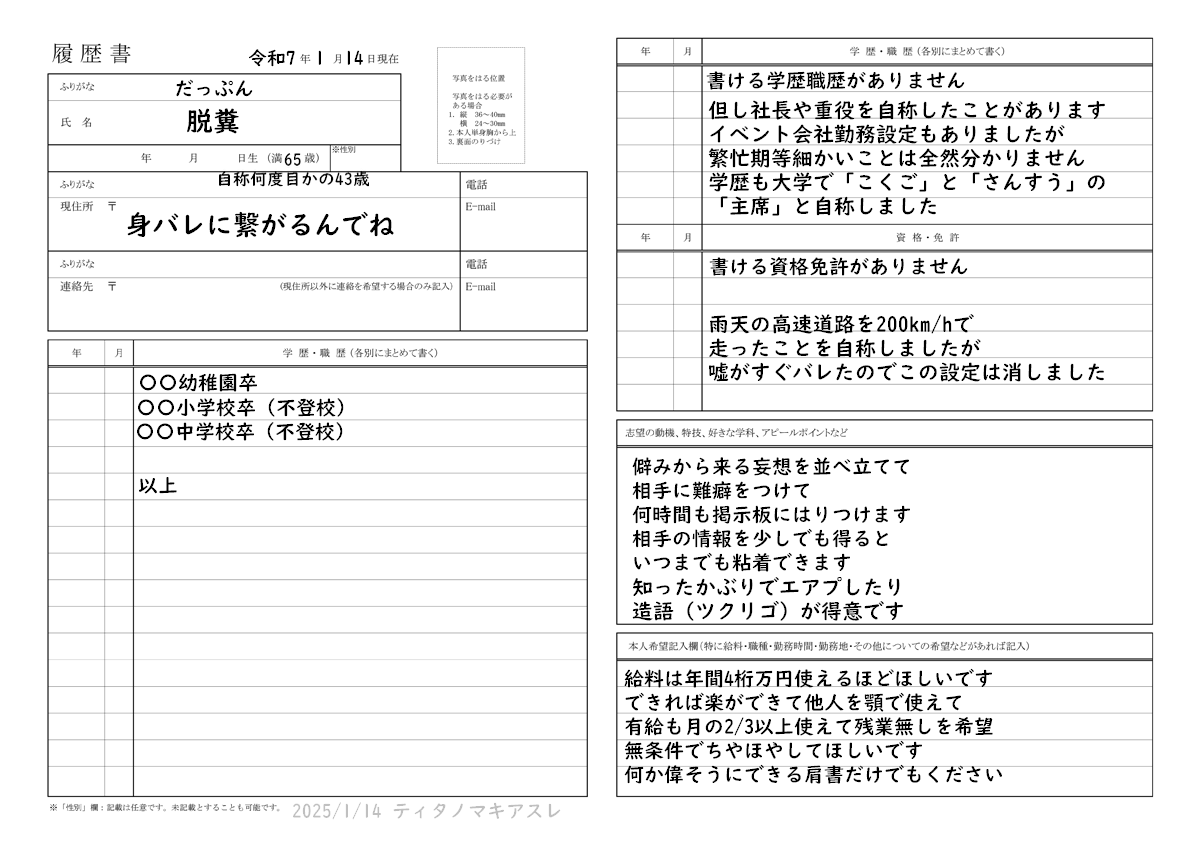 履歴書
令和7年1月14日現在
写真をはる位置
写真をはる必要が
ある場合
1. 縦 36～40mm
横 24～30mm
2. 本人単身胸から上
3. 裏面のりづけ
ふりがな
だっぷん
氏 名
脱糞
年 月 日生 (満65歳)
※性別
ふりがな
自称何度目かの43歳
電話
現住所 〒
身バレに繋がるんでね
E-mail
ふりがな
電話
連絡先 〒
(現住所以外に連絡を希望する場合のみ記入)
E-mail
年 月 学 歴・職 歴 (各別にまとめて書く)
〇〇幼稚園卒
〇〇小学校卒（不登校）
〇〇中学校卒（不登校）
以上
※「性別」欄：記載は任意です。未記載とすることも可能です。
2025/1/14 ティタノマキアスレ
年 月 学 歴・職 歴 (各別にまとめて書く)
書ける学歴職歴がありません
但し社長や重役を自称したことがあります
イベント会社勤務設定もありましたが
繁忙期等細かいことは全然分かりません
学歴も大学で「こくご」と「さんすう」の
「主席」と自称しました
年 月 資 格・免 許
書ける資格免許がありません
雨天の高速道路を200km/hで
走ったことを自称しましたが
嘘がすぐバレたのでこの設定は消しました
志望の動機、特技、好きな学科、アピールポイントなど
僻みから来る妄想を並べ立てて
相手に難癖をつけて
何時間も掲示板にはりつけます
相手の情報を少しでも得ると
いつまでも粘着できます
知ったかぶりでエアプしたり
造語（ツクリゴ）が得意です
本人希望記入欄(特に給料・職種・勤務時間・勤務地・その他についての希望などがあれば記入)
給料は年間4桁万円使えるほどほしいです
できれば楽ができて他人を顎で使えて
有給も月の2/3以上使えて残業無しを希望
無条件でちやほやしてほしいです
何か偉そうにできる肩書だけでもください